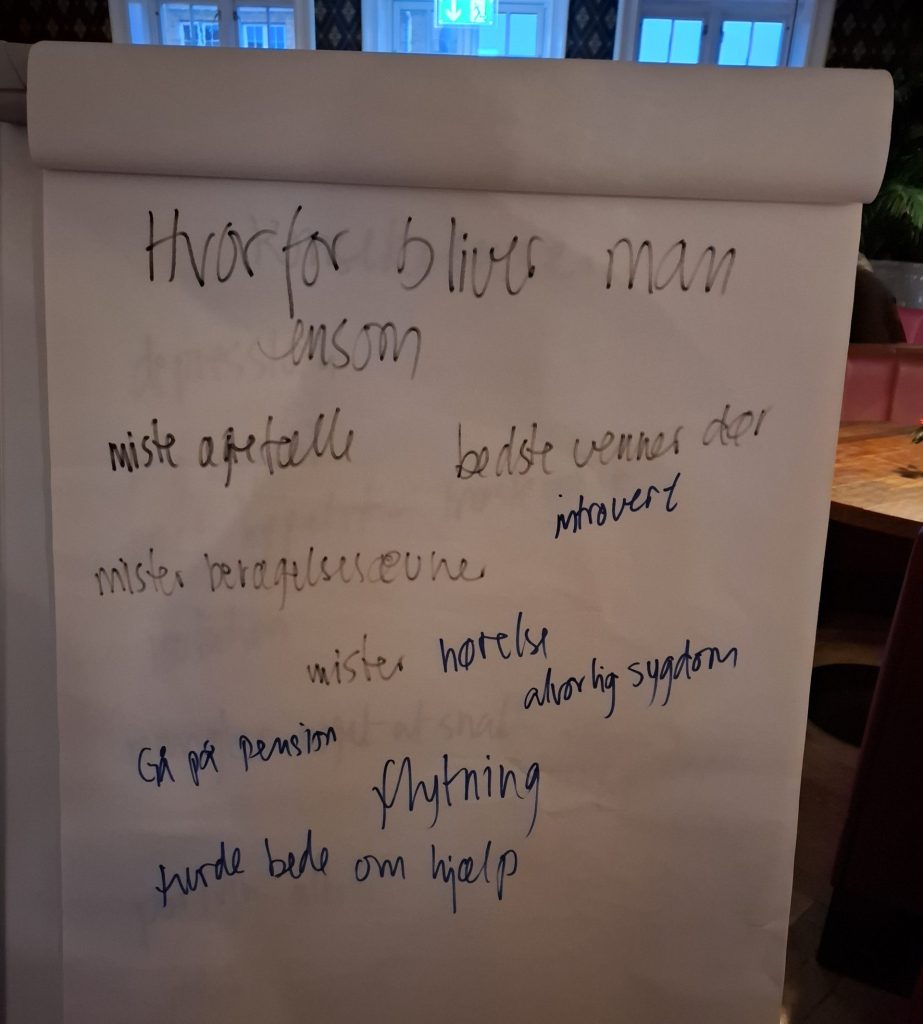 Hvorfor bliver man
ensom
miste ægtefælle
bedste venner dør
introvert
mister bevægelsesævne
mister hørelse
alvorlig sygdom
Gå på pension
flytning
turde bede om hjælp